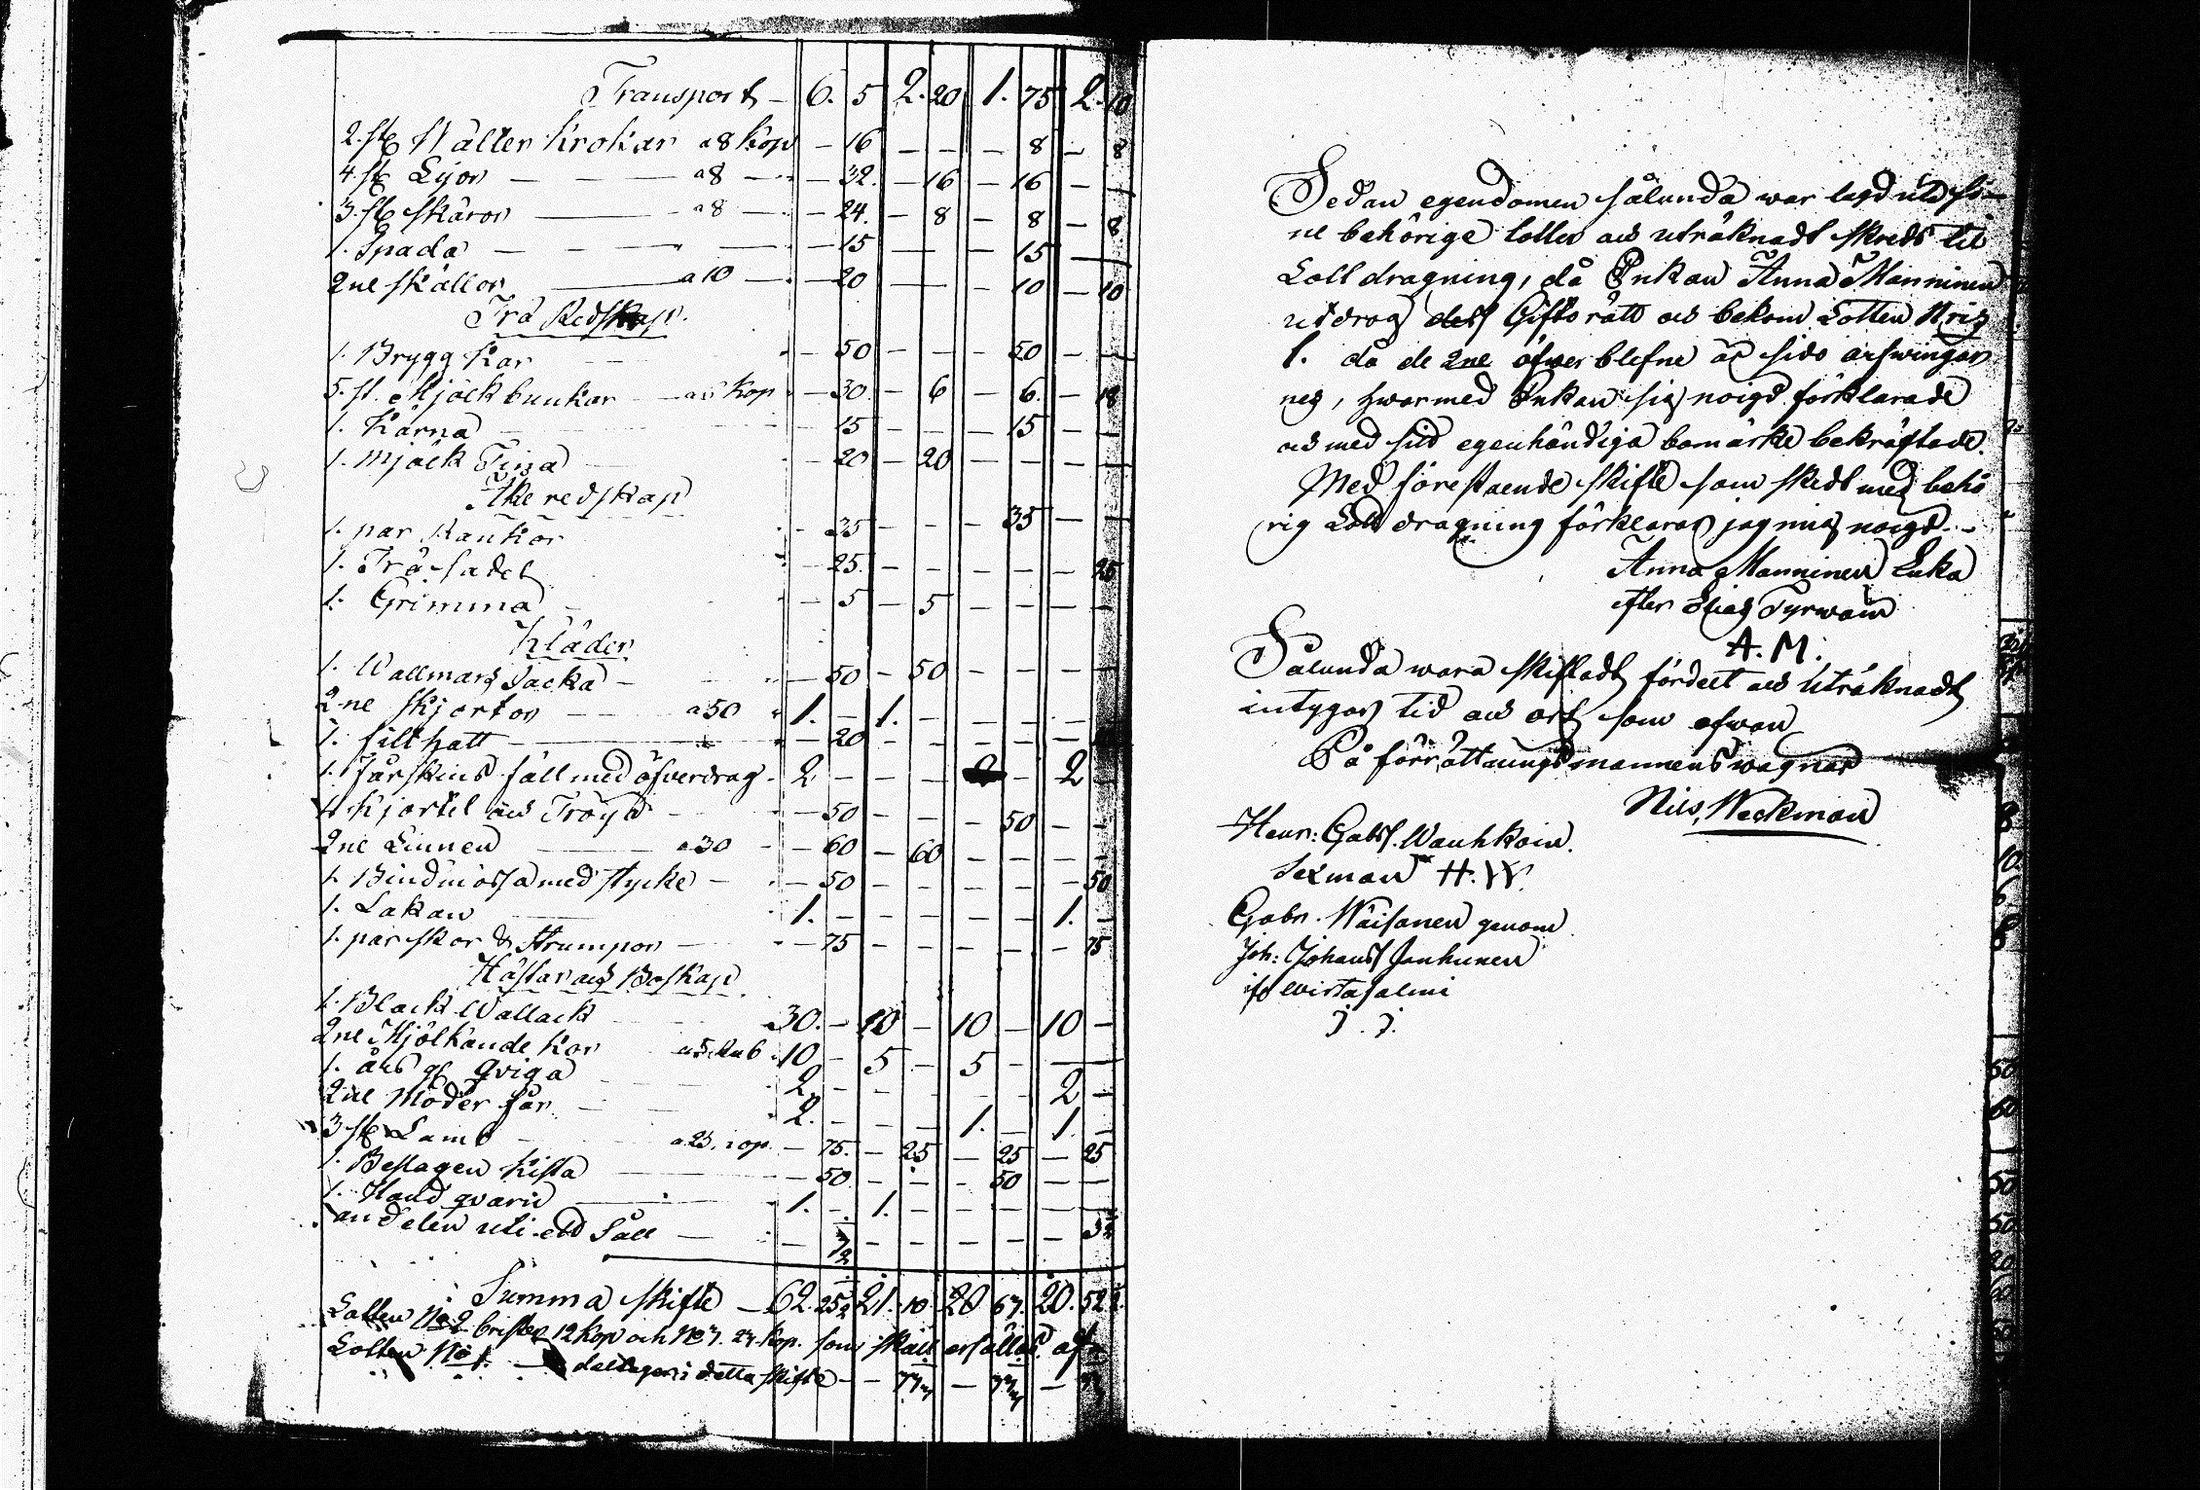 Transport – 6. 5 2. 20 1. 75 2. 10
2. st. Wälter Krokar a 8 kop – 16 – – – 8 – 8
4 st. Lijor – – – a 8 – – 32. – 16 – 16 – –
3. st. skäror – a 8 – – 24. – 8 – 8 – 8
1. Spada – – – – 15 – – – 15 –
2ne skällor – a 10 – – 20 – – – 10 – 10
Trä Redskap.
1. Brygg Kar – – 50 – – – 50 – –
5. st. Mjölk bunkar – a 6 kop – 30 – 6 – 6. – 18
1. Kärna – – 15 – – – 15 – –
1. Mjölk Tina – – 20 – 20 – – – –
Åke redskap
1. par Rankor – 35 – – – 35 – –
1. Trä sadel – 25. – – – – – 25
1. Grimma – – 5 – 5 – – – –
Kläder
1. Wallmars Jacka – – 50 – 50 – – – –
2ne skjortor – – a 50 1. – 1. – – – – –
1. filt hatt – – 20 – – – – –
1. Fårskins fäll med öfverdrag. 2 – – – – 2 –
1 Kjortel och Tröja – – 50 – – – 50 – –
2ne Linnen – a 30 – 60 – 60 – – – –
1. Bindmössa med stycke – – 50 – – – – – 50
1. Lakan 1. – – – – – 1. –
1. par skor & Strumpor – – 75 – – – – – 75
Hästar och Boskap
1. Black Wallack 30. – 10 – 10 – 10 –
2ne Mjölkande Kor a 5 Rub. 10 – 5 – 5 – –
1. års gl Qviga 2 – – – – – 2 –
2ne Moder får – 2. – – – 1. – 1. –
3 st. Lamb – a 25. kop – 75. – 25 – 25 – 25
1. Beslagen Kista – – 50 – – – 50 – –
1. Hand qvarn – 1. – 1. – – – –
andelen uti ett Såll –
Summa skifte – 62. 25½ 21. 10. 20 67. 20. 52½.
Lotten No 2 brister 12 kop och No 3. 27 kop. som skall ersättas af
Lotten No 1. – deltager i detta skifte –
Sedan egendomen sålunda war lagd uti si–
ne behörige lotter och uträknadt skreds til
Lottdragning, då Enkan Anna Manninen
utdrog dess Giftorätt och bekom Lotten No
1. då de 2ne öfver blefne ä sido arfwingar
ne, hwarmed Enkan sig nöigd förklarade
och med sitt egenhändiga bomärke bekräftade.
Med förestaende skifte som skedt med behö
rig Lott dragning förklarar jag mig nöigd. –
Anna Manninen Enka
efter Elias Tyrwäin
A. M.
Sålunda wara skiftadt fördelt och Uträknadt
intygar tid och ort som ofwan
På förrättningsmannens wägnar
Nils Weckman
Henr: Gabrs. Wauhkoin.
Sexman H. W.
Gabr. Wäisänen genom
Joh: Johanss Janhunen
ifr Wirtasalmi
J. J.